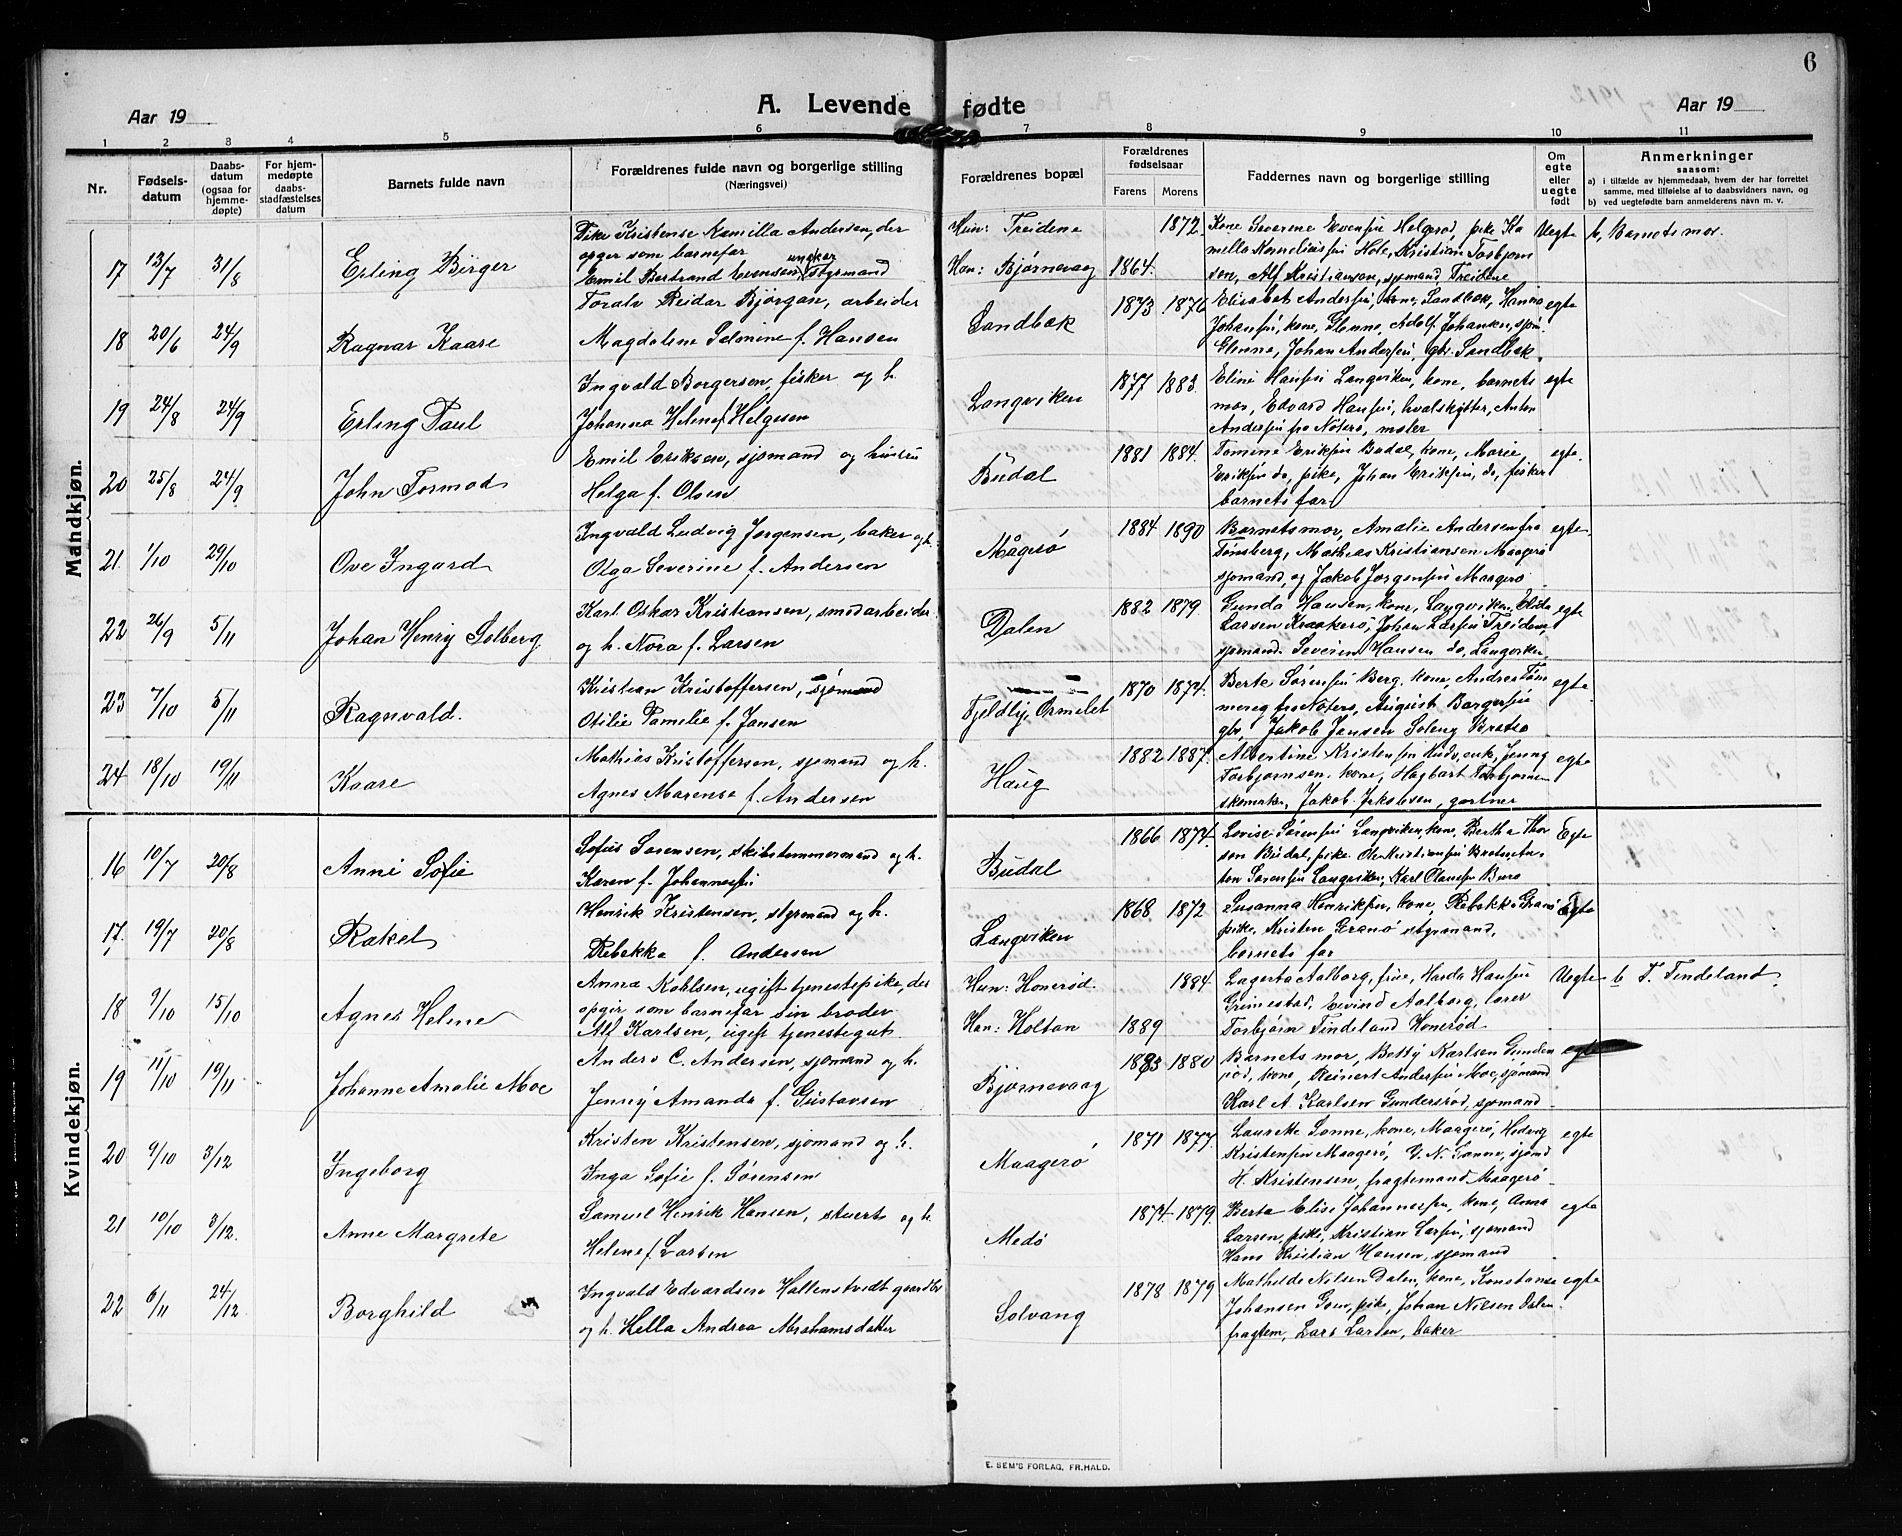 6
Aar 19
A. Levende fødte
Aar 19
1 2 3 4 5 6 7 8 9 10 11
Nr.
Fødsels-
datum
Daabs-
datum
(ogsaa for
hjemme-
døpte)
For hjem-
medøpte
daabs-
stadfæstelses
datum
Barnets fulde navn
Forældrenes fulde navn og borgerlige stilling
(Næringsvei)
Forældrenes bopæl
Forældrenes
fødselsaar
Farens Morens
Faddernes navn og borgerlige stilling
Om
egte
eller
uegte
født
Anmerkninger
saasom:
a) i tilfælde av hjemmedaab, hvem der har forrettet
samme, med tilføielse af to daabsvidners navn, og
b) ved uegtefødte barn anmelderens navn m. v.
Mandkjøn.
17 13/7 31/8 Erling Birger
Pike Kristense Kamilla Andersen, der
opgir som barnefar
Emil Bertrand Evensen, ungkar, styrmand
Hun: Treidene 1872
Han: Bjørnevaag 1864.
Kone Severine Evensen Helgerød, pike Ka
mella Korneliussen Hole, Kristian Torbjørn
sen, Alf Kristiansen, sjømand Treidene
Uegte b, Barnets mor.
18 20/6 24/9 Ragnar Kaare
Toralv Reidar Bjørgan, arbeider
Magdalene Selmine f. Hansen
Sandbæk 1873 1876
Elisabet Andersen, kone, Sandbæk, Hanna
Johansen, kone, Glenne, Adolf Johansen, sjøm.
Glenne, Johan Andersen, gbr. Sandbæk.
egte
19 24/8 24/9 Erling Paul
Ingvald Borgersen, fisker og h.
Johanna Helene f. Helgesen
Langviken 1877 1883.
Eline Hansen Langviken, kone, barnets
mor, Edvard Hansen, hvalskytter, Anton
Andersen fra Nøterø, maler
egte
20 25/8 24/9 John Tormod
Emil Eriksen, sjømand og hustru
Helga f. Olsen
Budal 1881 1884.
Tomine Eriksen Budal, kone, Marie
Eriksen do, pike, Johan Eriksen, do, fisker
barnets far
egte.
21. 1/10 29/10 Ove Ingard
Ingvald Ludvig Jørgensen, baker og h.
Olga Severine f. Andersen
Mågerø 1884 1890
Barnets mor, Amalie Andersen fra
Tønsberg, Mathias Kristiansen Maagerø
sjømand, og Jakob Jørgensen Maagerø
egte
22 26/9 5/11 Johan Henry Solberg
Karl Oskar Kristiansen, smedarbeider
og h. Nora f. Larsen
Dalen 1882 1879.
Gunda Hansen, kone, Langviken, Elida
Larsen Kraakerø, Johan Larsen Treidene,
sjømand. Severin Hansen do, Langviken,
egte
23 7/10 5/11 Ragnvald.
Kristian Kristoffersen, sjømand
Otilie Pamelie f. Jansen
Fjeldly, Ormelet 1870 1874.
Berte Sørensen Berg, kone, Andrea Tøm
mereg fra Nøterø, August Borgersen
gbr, Jakob Jansen Soleng Bratsø
egte
24 18/10 19/11 Kaare
Mathias Kristoffersen, sjømand og h.
Agnes Marense f. Andersen
Haug 1882 1887.
Albertine Kristensen Hude, enke, Jenny
Torbjørnsen, kone, Hagbart Torbjørnsen
skomaker, Jakob Jakobsen, gartner
egte
Kvindekjøn.
16 10/7 20/8 Anni Sofie
Sofus Sørensen, skibstømmermand og h.
Karen f. Johannessen
Budal 1866 1874.
Lovise Sørensen Langviken, kone, Berthe Thor
sen Budal, pike. Ole Kristiansen Bratsø, An
ton Sørensen Langviken, Karl Olaussen Burø
Egte
17. 19/7 20/8 Rakel
Henrik Kristensen, styrmand og h.
Rebekka f. Andersen
Langviken 1868 1872
Susanna Henriksen, kone, Rebekka Granø
pike, Kristen Granø styrmand,
barnets far
Egte
18 9/10 15/10 Agnes Helene
Anna Kohlsen, ugift tjenestepike, der
opgir som barnefar sin broder
Alf Karlsen, ugift tjenestegut
Hun: Honerød. 1884.
Han: Holtan 1889
Lagerta Aalborg, frue, Harda Hansen
Grimestad, Eivind Aalborg, lærer
Torbjørn Tindeland Honerød
Uegte b T. Tindeland
19 11/10 19/11 Johanne Amalie Moe
Anders C. Andersen, sjømand og h.
Jenny Amanda f. Gustavsen
Bjørnevaag 1883 1880
Barnets mor, Betty Karlsen Gunder
rød, kone, Reinert Andersen Moe, sjømand
Karl A. Karlsen Gundersrød, sjømand
egte
20 9/10 3/12 Ingeborg
Kristen Kristensen, sjømand og h.
Inga Sofie f. Sørensen
Maagerø 1871 1877
Laurette Sonne, kone, Maagerø, Hedvig
Kristensen Maagerø, G. N. Sonne, sjømd
H. Kristensen, fragtemand Maagerø
egte
21 10/10 3/12. Anne Margrete
Samuel Henrik Hansen, stuert og h.
Helene f. Larsen
Medø 1874. 1879.
Berta Elise Johannessen, kone, Anna
Larsen, pike, Kristian Larsen, sjømand
Hans Kristian Hansen, sjømand
egte
22 6/11 24/12 Borghild
Ingvald Edvardsen Hallenstvedt gaardbr
og h. Hella Andrea Abrahamsdatter
Solvang 1878 1879
Mathilde Nilsen Dalen, kone, Konstanse
Johansen Goen, pike, Johan Nilsen Dalen.
fragtem, Lars Larsen, baker
egte
E. SEM'S FORLAG, FR.HALD.